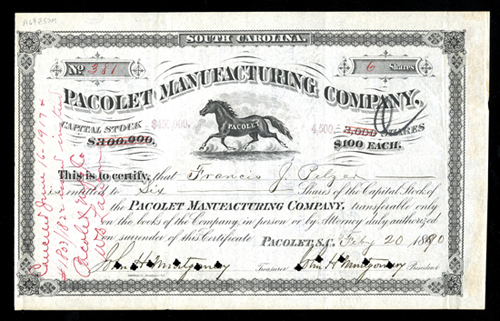 SOUTH CAROLINA.
No 381
6 Shares
PACOLET MANUFACTURING COMPANY.
CAPITAL STOCK $450,000. 4,500 3,000 SHARES
$300,000. $100 EACH.
PACOLET
This is to certify, that Francis J. Pelzer
is entitled to Six Shares of the Capital Stock of
the PACOLET MANUFACTURING COMPANY, transferable only
on the books of the Company, in person or by Attorney duly authorized
on surrender of this Certificate. PACOLET, S.C. Feby 20 1890
John H Montgomery Treasurer John H Montgomery President